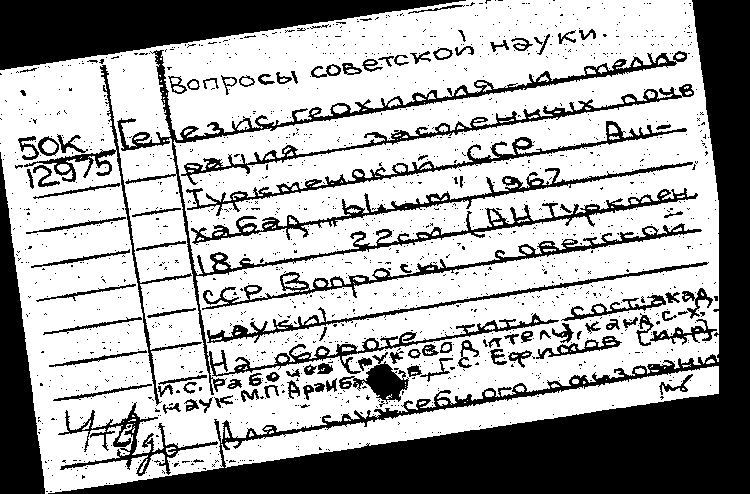 Вопросы советской науки.
50К
12975
Генезис, геохимия и мелио
рация засоленных почв
Туркменской ССР. Аш-
хабад, "Ылым", 1967
18с. 22см (АН Туркмен.
ССР. Вопросы советской
науки)
На обороте тит.л. сост: акад.
И.С. Рабочев (руководитель), канд. с-х.
наук М.П. Аранба в, Г.С. Ефимов [и др].
Для служебного пользования